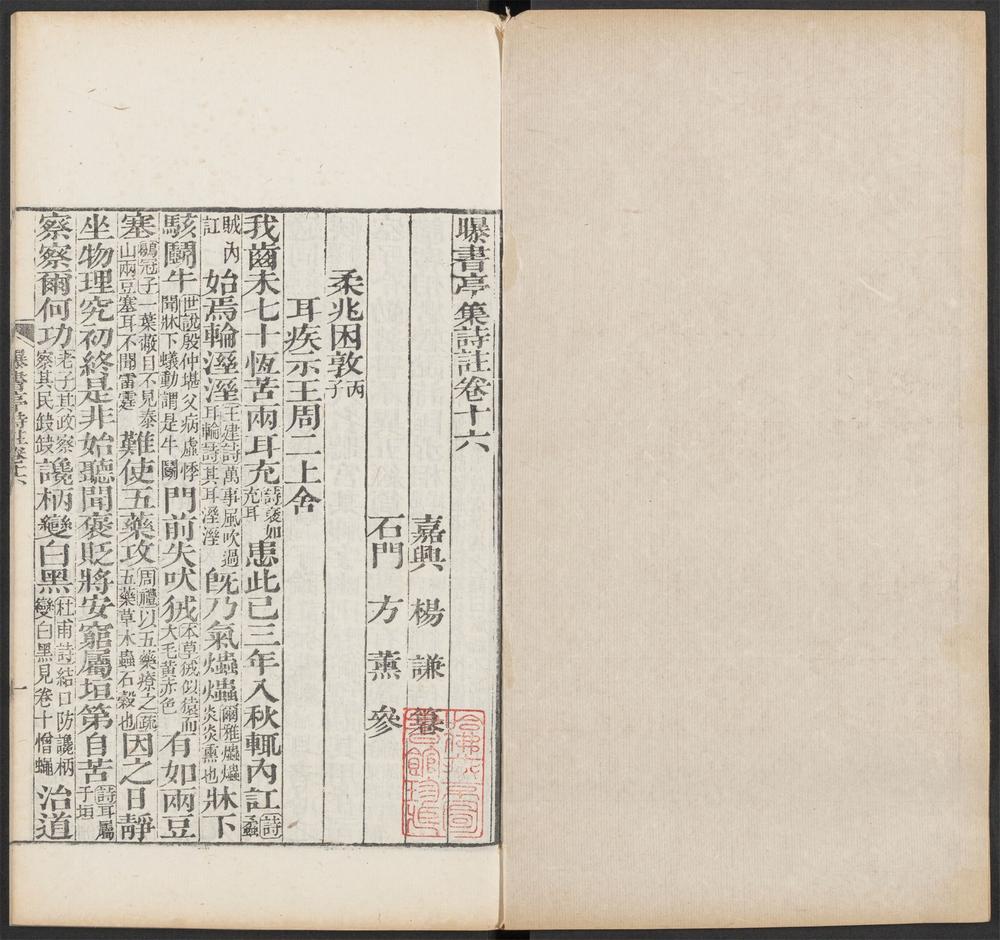 曝書亭集詩註卷十六
嘉興 楊 謙 篹
石門 方 薰 參
柔兆困敦丙子
耳疾示王周二上舍
我齒未七十恆苦兩耳充詩褎如充耳患此已三年入秋輒內訌詩蟊
賊內訌始焉輪溼溼王建詩萬事風吹過耳輪詩其耳溼溼旣乃氣爞爞爾雅爞爞炎炎熏也牀下
駭鬭牛世說殷仲堪父病虛悸聞牀下蟻動謂是牛鬭門前失吠狨本草狨似猿而大毛黃赤色有如兩豆
塞鶡冠子一葉蔽目不見泰山兩豆塞耳不聞雷霆難使五藥攻周禮以五藥療之疏五藥草木蟲石穀也因之日靜
坐物理究初終是非始聽聞褒貶將安窮屬垣第自苦詩耳屬于垣
察察爾何功老子其政察察其民缺缺讒柄變白黑杜甫詩結口防讒柄變白黑見卷十憎蠅治道
曝書亭詩註卷十六
一
哈佛大學